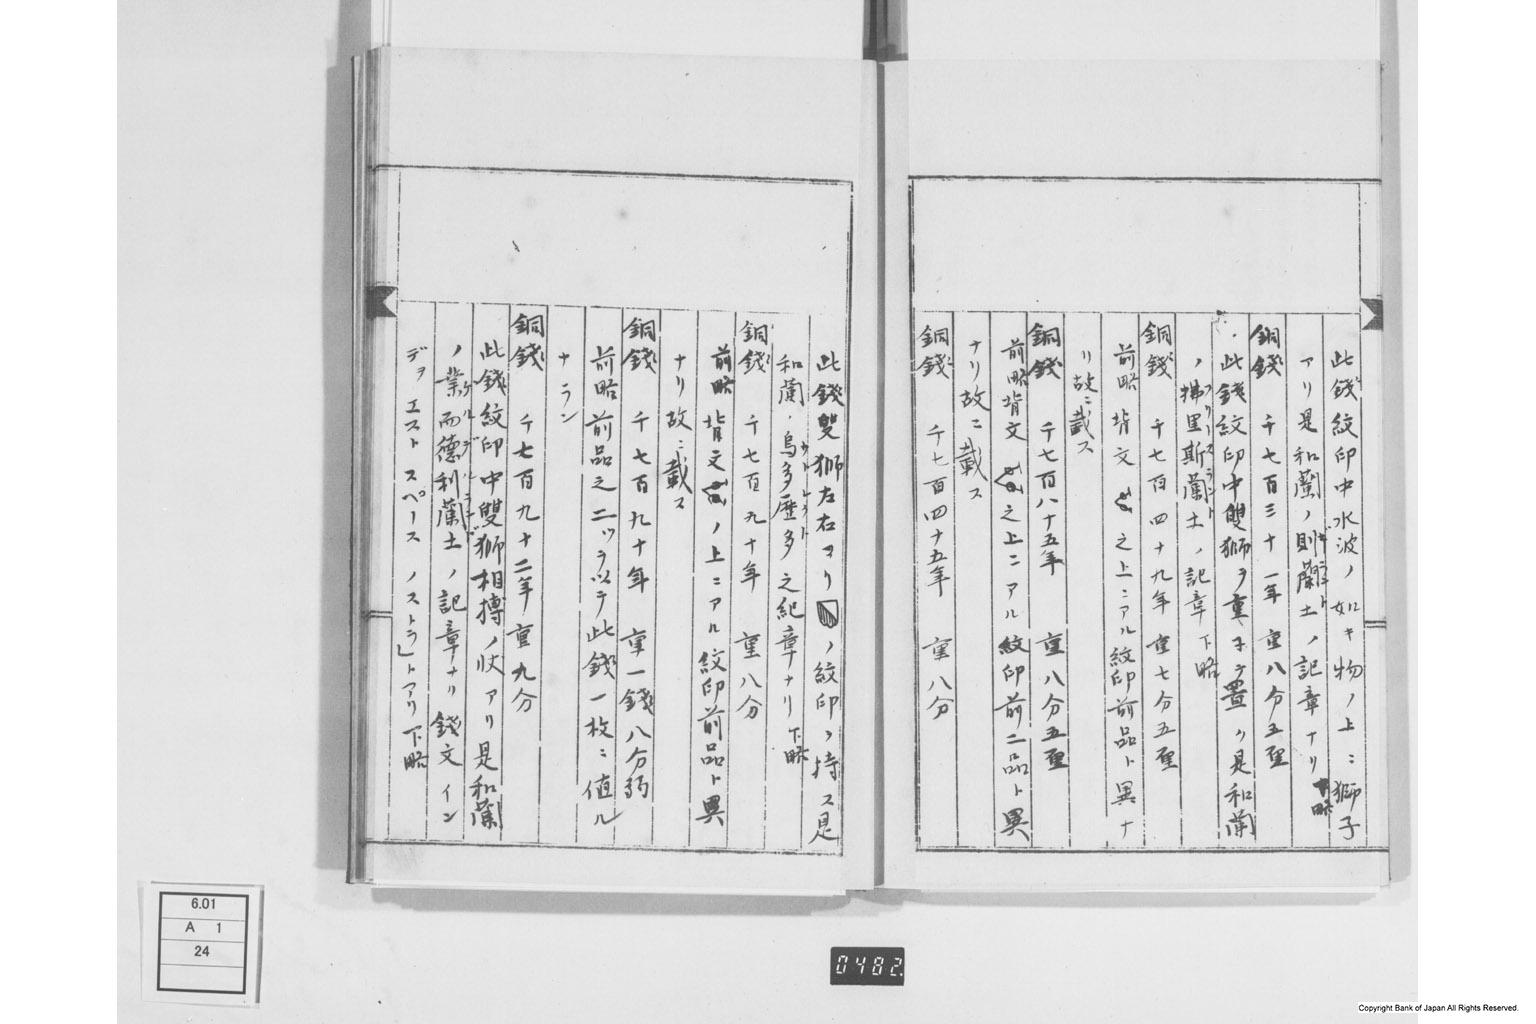 此錢紋印中水波ノ如キ物ノ上ニ獅子
アリ是和蘭ノ則蘭土ノ記章ナリ下略
銅錢 千七百三十一年 重八分五厘
此錢紋印中雙獅ヲ重子テ置ク是和蘭
ノ拂里斯蘭土ノ記章 下略
フリースラント
銅錢 千七百四十九年 重七分五厘
前略 背文之上ニアル紋印前品ト異ナ
リ故ニ載ス
銅錢 千七百八十五年 重八分五厘
前略背文之上ニアル紋印前二品ト異
ナリ故ニ載ス
銅錢 千七百四十五年 重八分
此錢雙獅左右ヨリノ紋印ヲ持ス是
和蘭烏多歴多之紀章ナリ下略
ウトレクト
銅錢 千七百九十年 重八分
前略 背文ノ上ニアル紋印前品ト異
ナリ故ニ載ス
銅錢 千七百九十年 重一錢八分弱
前略前品之二ツヲ以テ此錢一枚ニ値ル
ナラン
銅錢 千七百九十二年 重九分
此錢紋印中雙獅相搏ノ状アリ是和蘭
ノ業而德利蘭土ノ記章ナリ 錢文イン
ゲルデルランド
デヲ エスト スペース ノストラ」トアリ 下略
6.01
A 1
24
0482
Copyright Bank of Japan All Rights Reserved.